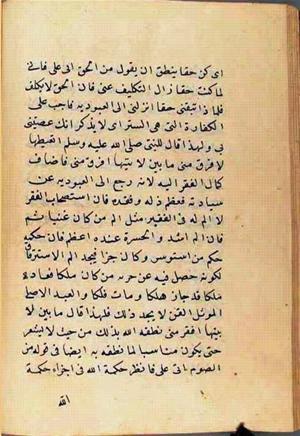 اى كن حقا ينطق ان يقول من الحق انى على فائى
لما كنت حقا زال التكليف عنى فان الحق لا يكلف
فلما ذا تبقنى حقا انزلنى الى العبوديه فاجب على
الكفارة التى هى الستراى لا يذكر انك عصيتنى
ولهذا قال للبنى صلى الله عليه وسلم
لا فرق منى ما بين لا بتيها افرق منى فاضاف
كمال الفقر اليه لانه رجع الى العبوديه عن
سيادته فعظم ذله وفقده فان استصحاب الفقر
لا الم له فى الفقير مثل الم من كان غنيا ثم
فان الم اشد والحسرة عنده اعظم فان حكمه
حكم من استوسر وكان حرا فيجد الم الاسترقاق
لكونه حصل فيه عن حريه من كان ملكا فعاد
ملكا قد جاز هلكا ومات فلكا والعبد الاصلى
المرتول القن لا يجد ذلك فلهذا قال ما بين لا
بتيها افقر منى نطقه الله بذلك من حيث لا يشعر
حتى يكون مناسبا لما نطقه به ايضا فى قوله من
الصوم انى على فانظر حكمة الله فى اجزاء حكمة
الله